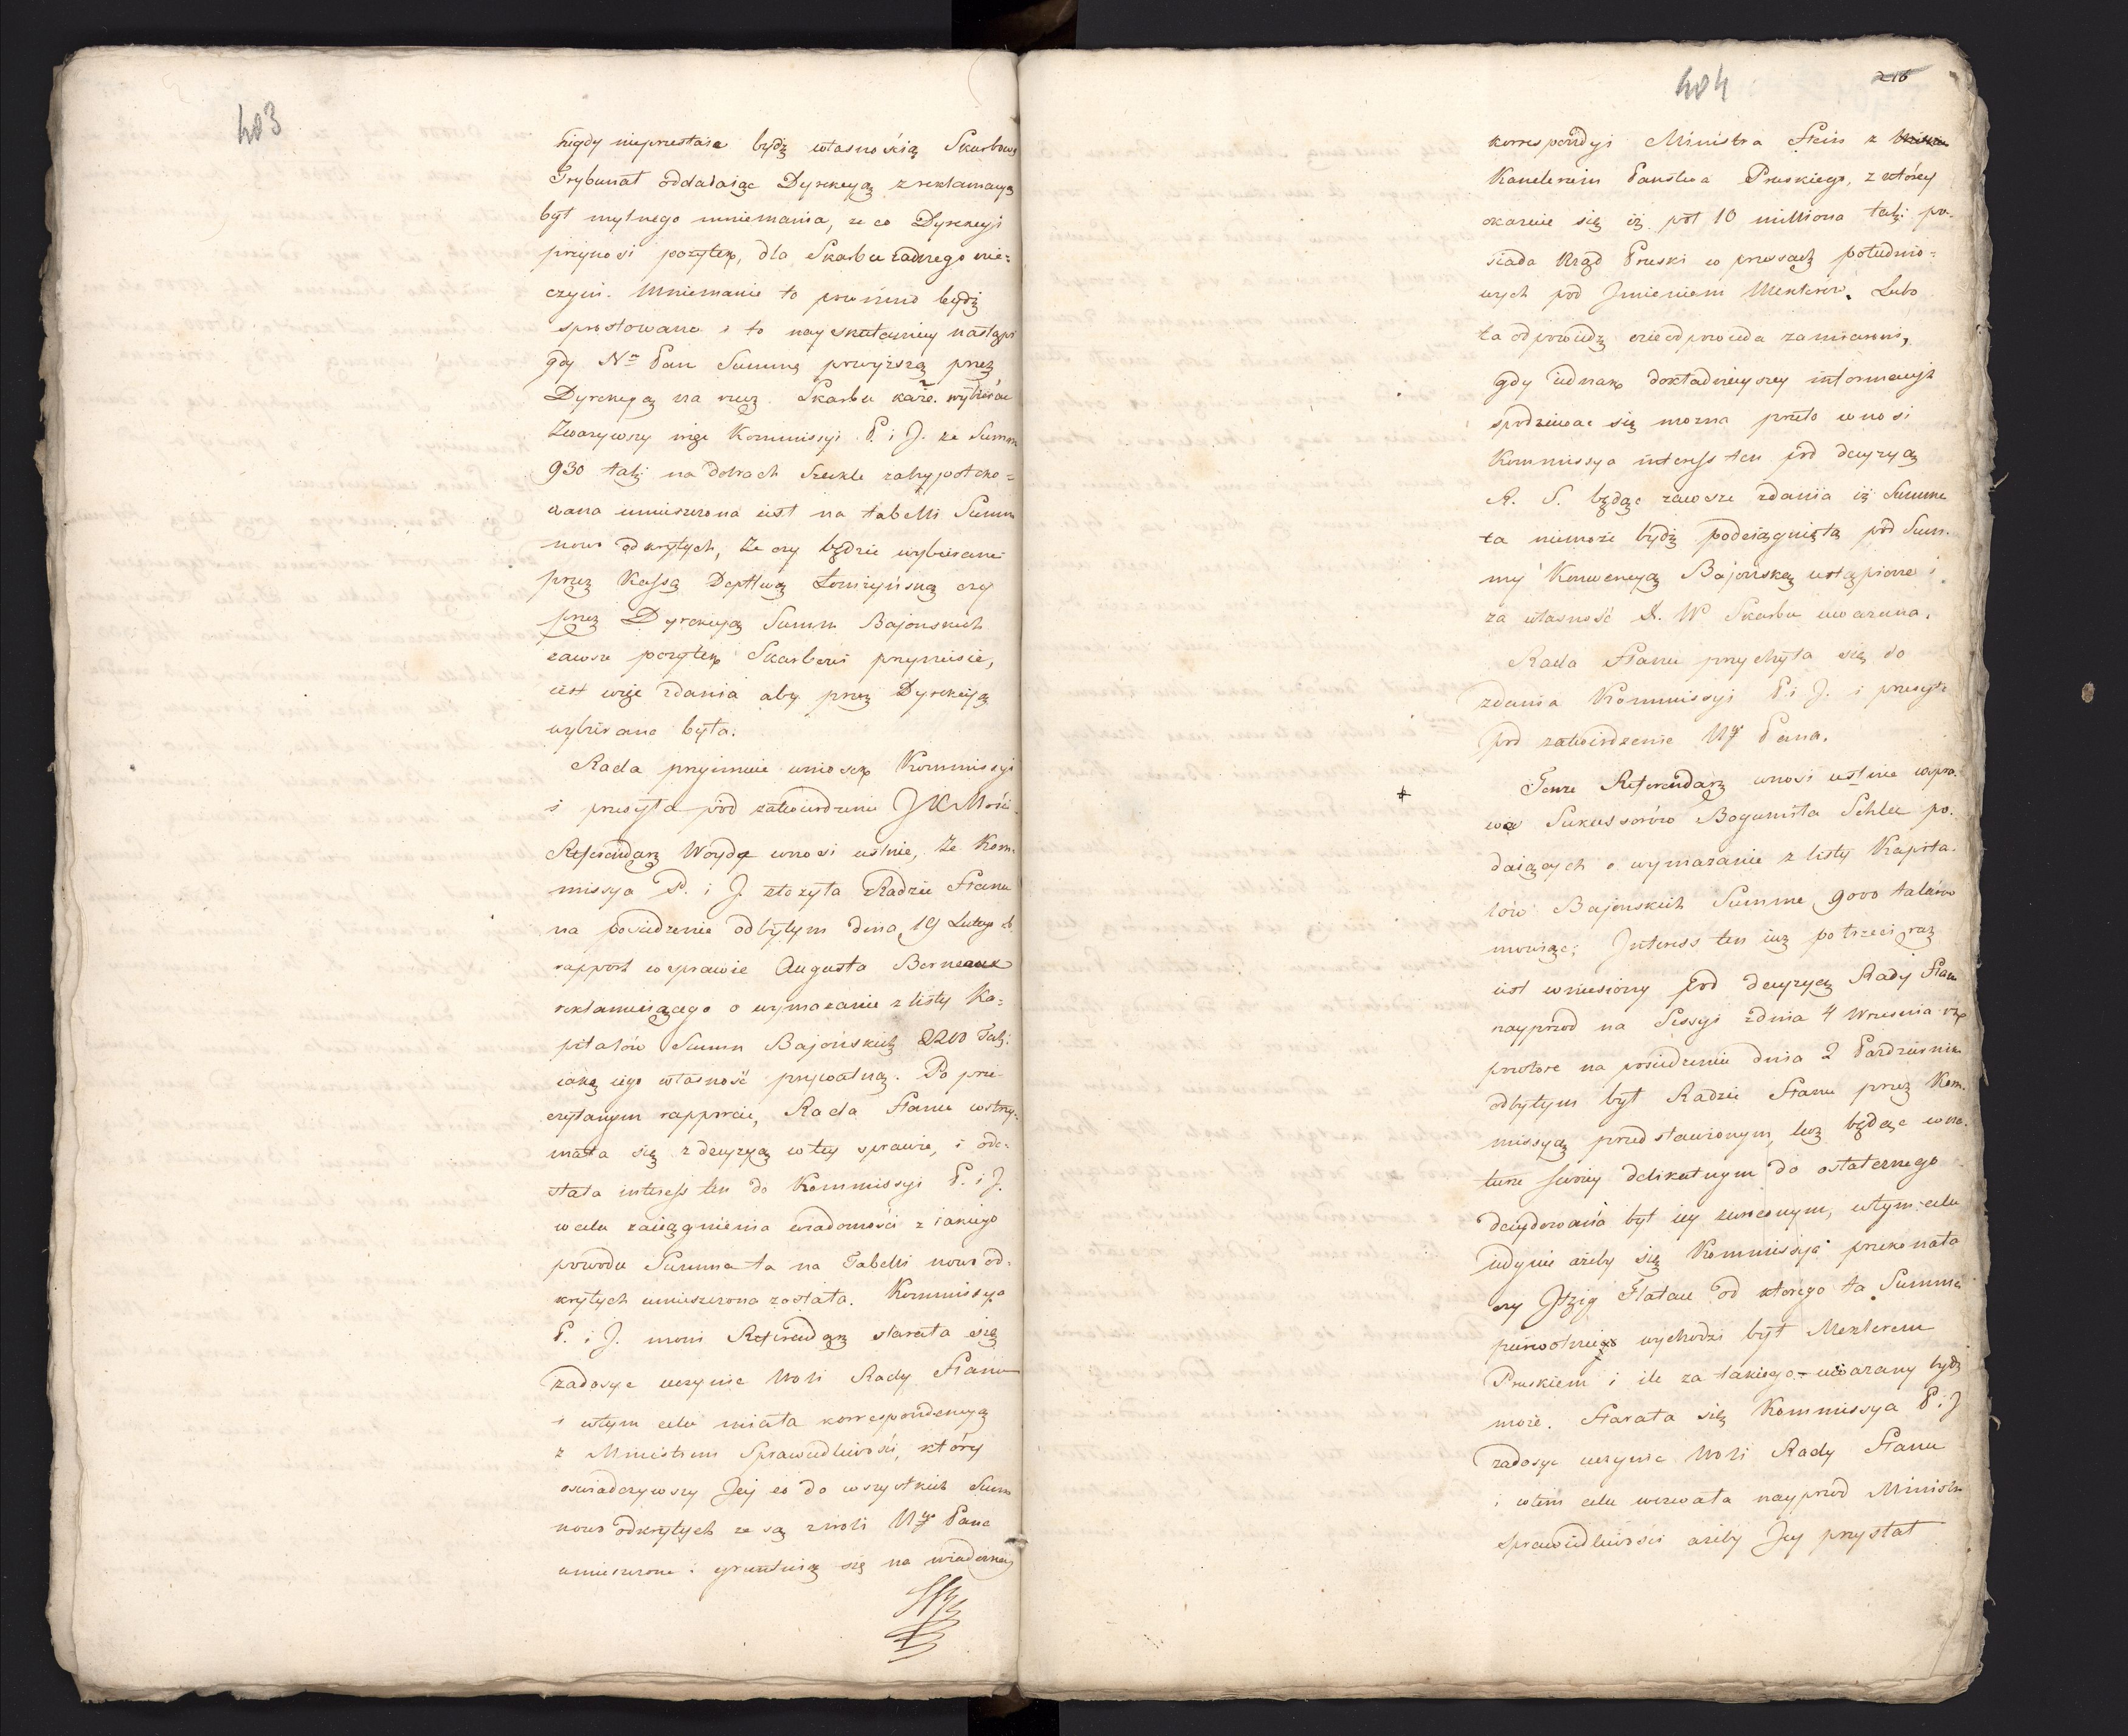 403
nigdy nieprzestaie bydź własnością Skarbową
Trybunał oddalaiąc Dyrekcyą z reklamacyą
był mylnego mniemania, że co Dyrekcyi
przynosi pożytek, dla Skarbu żadnego nie=
czyni. Mniemanie to powinno bydź
sprostowane i to nayskuteczniey nastąpi
gdy Nn Pan Summę powyższą przez
Dyrekcyą na rzecz Skarbu każe wybierać
Zważywszy więc Kommissyi P. i J. że Summa
930 talj na dobrach Szeckle zahypoteko=
wana umieszczona iest na tabelli Summ
nowo odkrytych, że czy będzie wybierane
przez Kassą Depttwą Łomżyńską czy
przez Dyrekcyą Summ Bajonskich
zawsze pożytek Skarbowi przyniesie,
iest więc zdania aby przez Dyrekcyą
wybierane była.
Rada przyimuie wniosek Kommissyi
i przesyła pod zatwierdzenie JKMości.
Referendarz Woyde wnosi ustnie, że Kom=
missya P. i J. złożyła Radzie Stanu
na posiedzenie odbytym dnia 19 Lutego b.
rapport w sprawie Augusta Berneaux
reklamuiącego o wymazanie z listy Ka=
pitałów Summ Bajońskich 2200 Talj.
iako iego własność prywatną. Po prze=
czytanym rapporcie, Rada Stanu wstrzy=
mała się z decyzyą w tey sprawie, i ode=
słała interess ten do Kommissyi P. i J.
w celu zaciągnienia wiadomości z iakiego
powodu Summa ta na Tabelli nowo od=
krytych umieszczona została. Kommissya
P. i J. mowi Referendarz starała się
zadosyc uczynic Woli Rady Stanu
i w tym celu miała korrespondencyą
z Ministrem Sprawiedliwości, który
oswiadczywszy Jey co do wszystkich Summ
nowo odkrytych że są z woli Nygo Pana
umieszczone i gruntuią się na wiadomey
404
218
korrespondyi Ministra Stein z
Kanclerzem Panstwa Pruskiego, z którey
okazuie się iż pół 10 milliona talj: po=
siada Rząd Pruski w prussach południo=
wych pod Jmieniem Meklerów. Lubo
ta odpowiedz nieodpowieda zamiarowi,
gdy iednak dokładnieyszey informacyi
spodziewac się mozna przeto wnosi
Kommissya interess ten pod decyzyą
R. S. będąc zawsze zdania iż Summa
ta niemoże bydź podciągniętą pod Sum=
my Konwencyą Bajońską ustąpione i
za własność X. W. Skarbu uwazana.
Rada Stanu przychyla się do
zdania Kommissyi P. i J. i przesyła
pod zatwierdzenie Nygo Pana.
Tenze Referendarz wnosi ustnie wspra=
wie Sukcessorów Bogumiła Schlee po=
daiących o wymazanie z listy Kapita=
łów Bajonskich Summe 9000 talarów
mowiąc; Interess ten iuz po trzeci raz
iest wniesiony pod decyzyą Rady Stanu
nayprzod na Sessyi zdnia 4 Wrzesnia r.
powtóre na posiedzeniu dnia 2 Pazdziernika
odbytym był Radzie Stanu przez Kom=
missyą przedstawionym, lecz będąc w na=
turze swoiey delikatnym do ostatecznego
decydowania był iey zwroconym, w tym celu
iedynie ażeby się Kommissya przekonała
czy Jtzig Flatau od ktorego ta Summa
pierwotnie wychodzi był Meklerem
Pruskiem i ile za takiego uwazany bydź
może. Starała się Kommissya P. i J.
zadosyc uczynic Woli Rady Stanu
i wtem celu wezwała nayprzod Ministra
Sprawiedliwości ażeby Jey przysłał